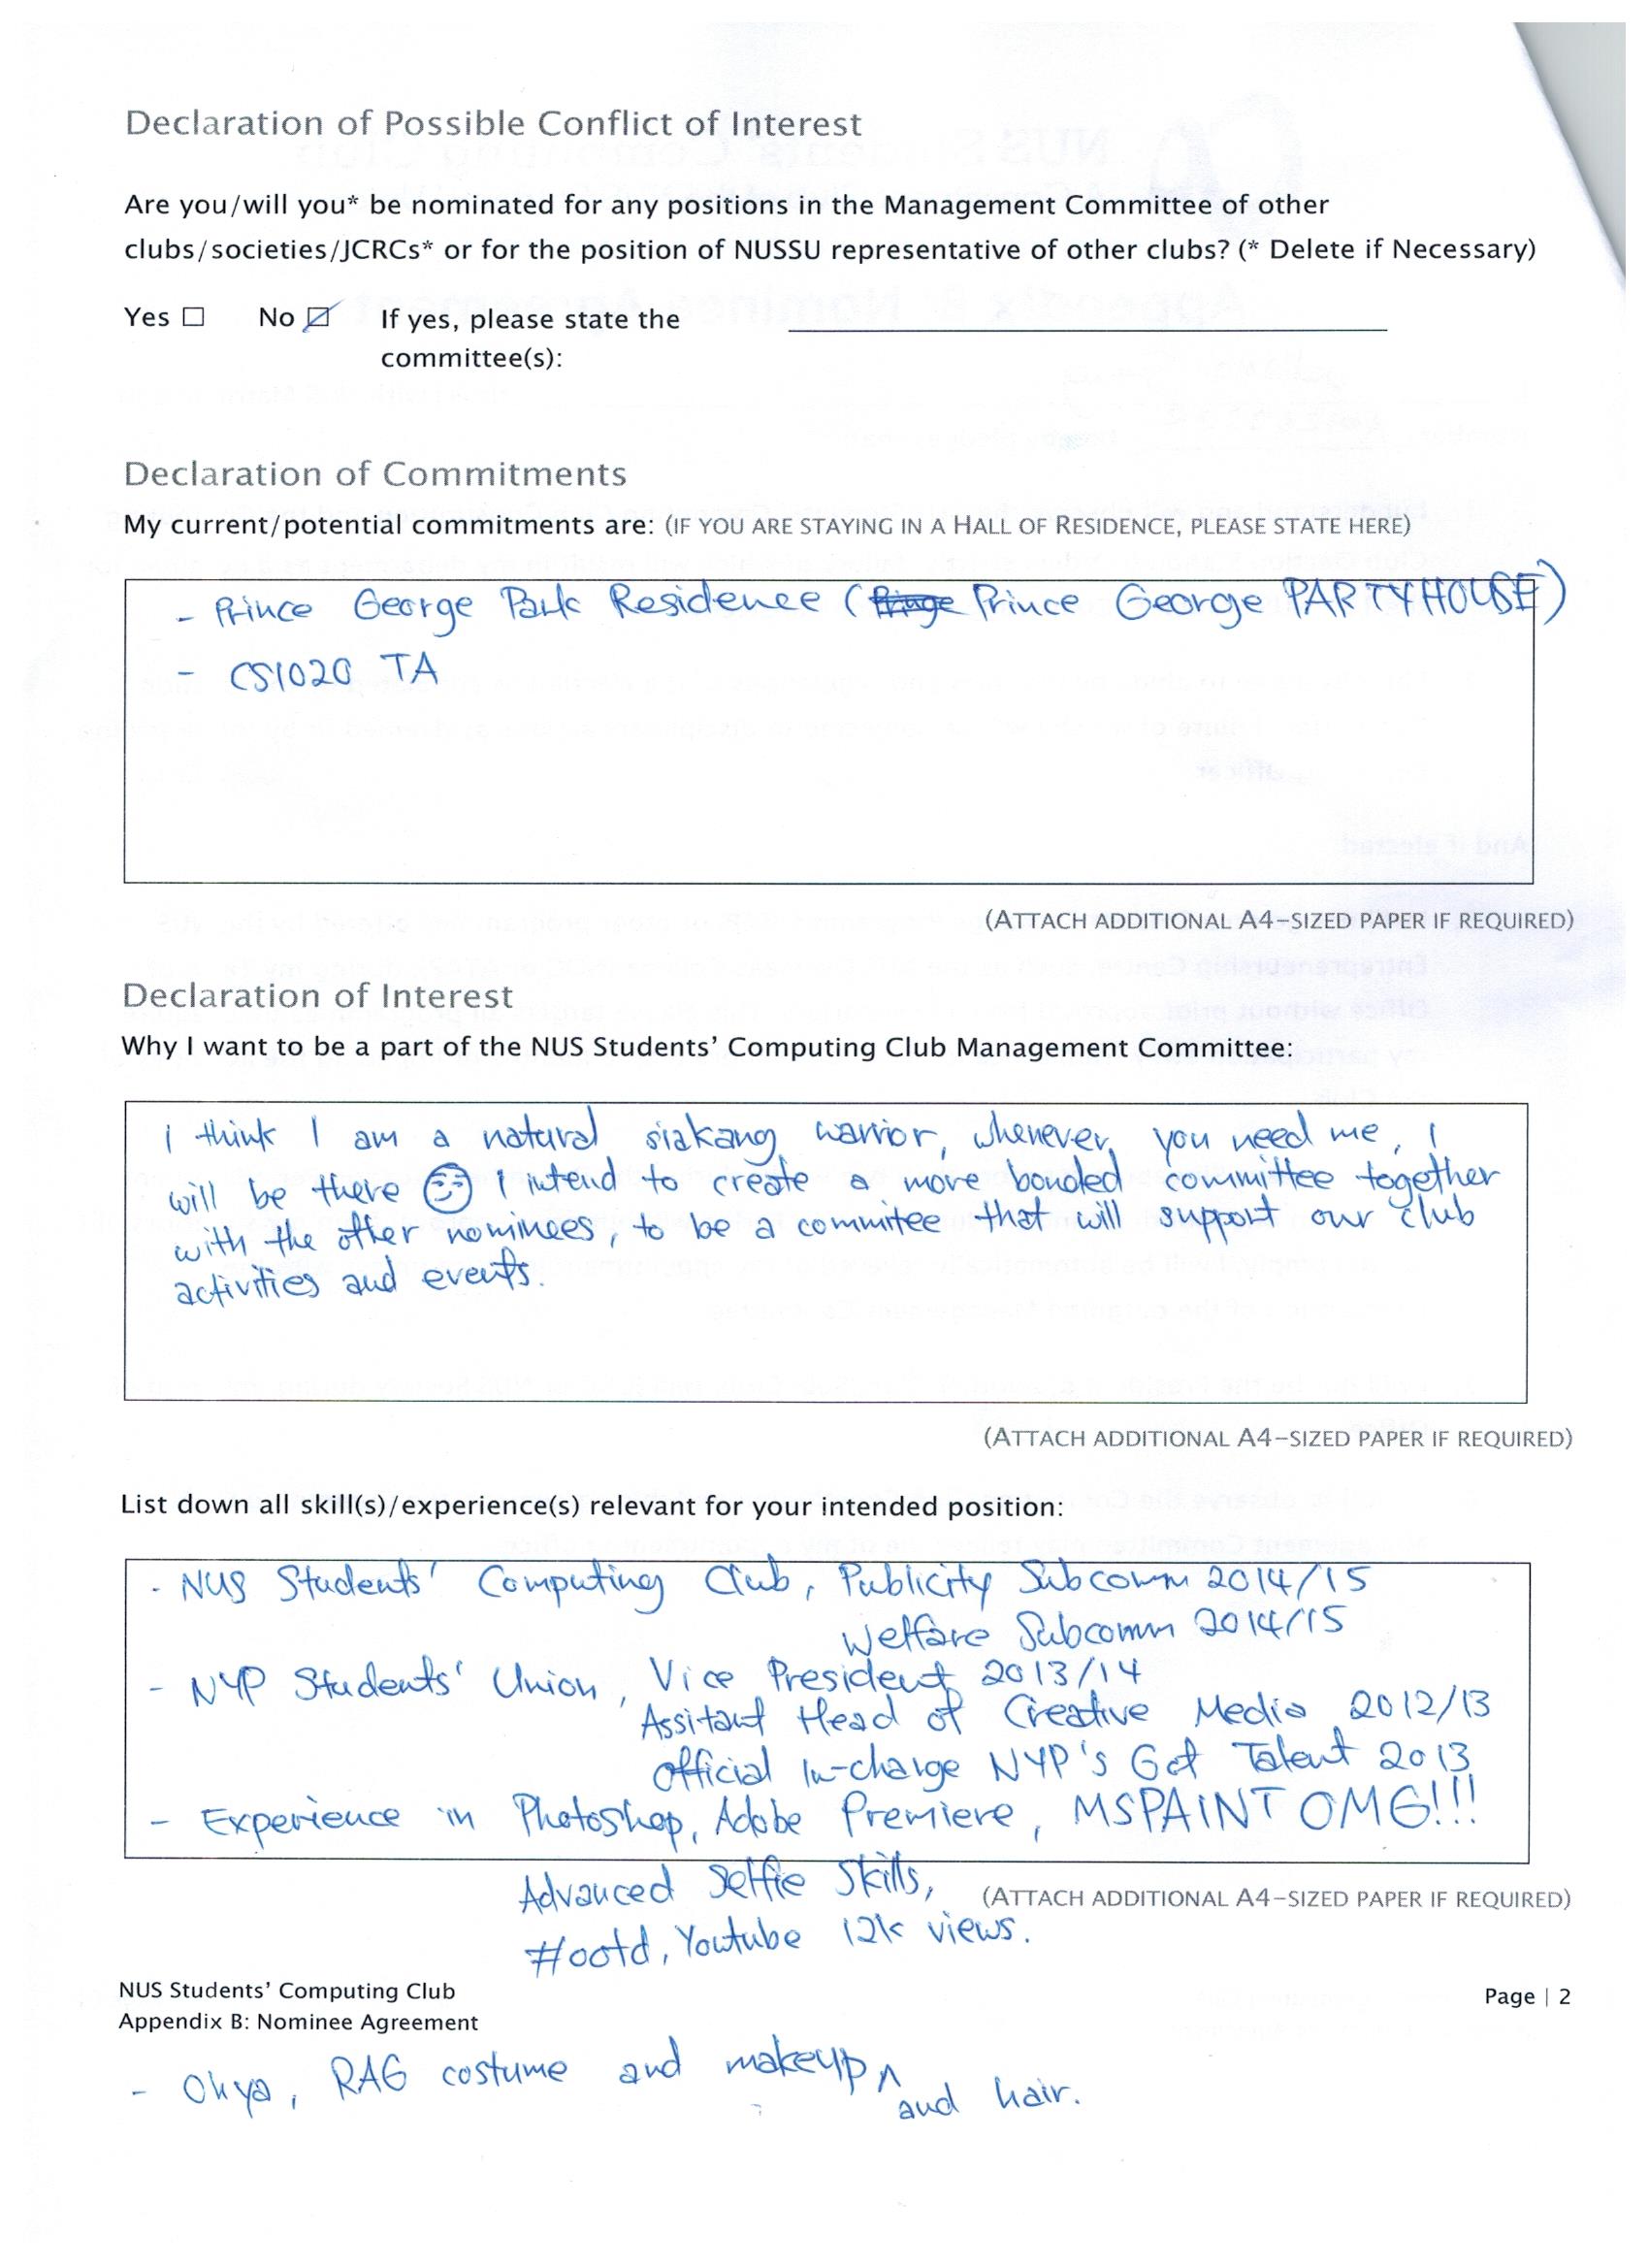 Declaration of Possible Conflict of Interest
Are you/will you* be nominated for any positions in the Management Committee of other
clubs/societies/JCRCs* or for the position of NUSSU representative of other clubs? (* Delete if Necessary)
Yes ☐ No ☑ If yes, please state the
committee(s):
Declaration of Commitments
My current/potential commitments are: (IF YOU ARE STAYING IN A HALL OF RESIDENCE, PLEASE STATE HERE)
- Prince George Park Residence (Prince George PARTYHOUSE)
- CS1020 TA
(ATTACH ADDITIONAL A4-SIZED PAPER IF REQUIRED)
Declaration of Interest
Why I want to be a part of the NUS Students' Computing Club Management Committee:
I think I am a natural siakang warrior, whenever you need me, I
will be there I intend to create a more bonded committee together
with the other nominees, to be a commitee that will support our club
activities and events.
(ATTACH ADDITIONAL A4-SIZED PAPER IF REQUIRED)
List down all skill(s)/experience(s) relevant for your intended position:
- NUS Students' Computing Club, Publicity Subcomm 2014/15
Welfare Subcomm 2014/15
- NYP Students' Union, Vice President 2013/14
Assitant Head of Creative Media 2012/13
Official In-charge NYP's Got Talent 2013
- Experience in Photoshop, Adobe Premiere, MSPAINT OMG!!!
Advanced Selfie Skills,
(ATTACH ADDITIONAL A4-SIZED PAPER IF REQUIRED)
#ootd, Youtube 12k views.
NUS Students' Computing Club
Page | 2
Appendix B: Nominee Agreement
- Ohya, RAG costume and makeup ^ and hair.